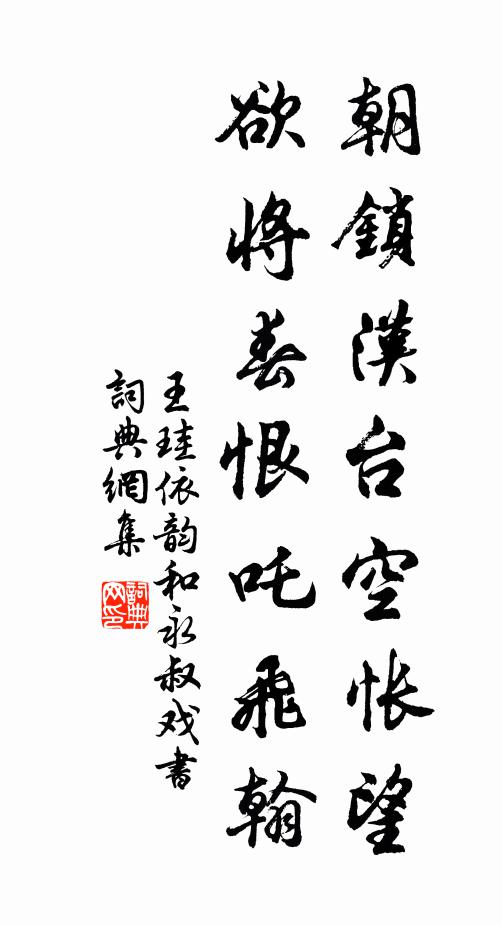 朝鎖漢台空悵望
欲將春恨吒飛翰
王珪依韵和永叔戏書
詞典網集
詞典网印